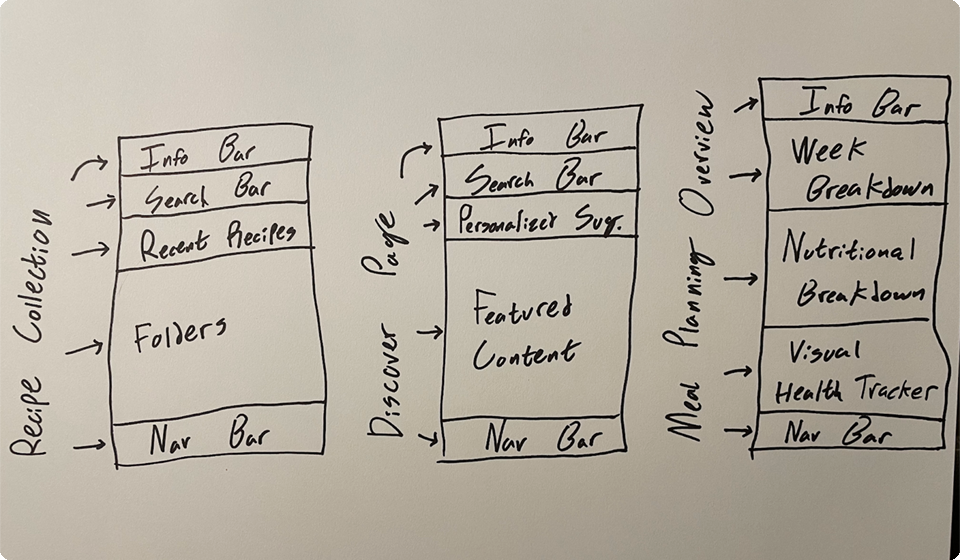 Recipe Collection
Info Bar
Search Bar
Recent Recipes
Folders
Nav Bar
Discover Page
Info Bar
Search Bar
Personalized Sug.
Featured
Content
Nav Bar
Meal Planning Overview
Info Bar
Week
Breakdown
Nutritional
Breakdown
Visual
Health Tracker
Nav Bar